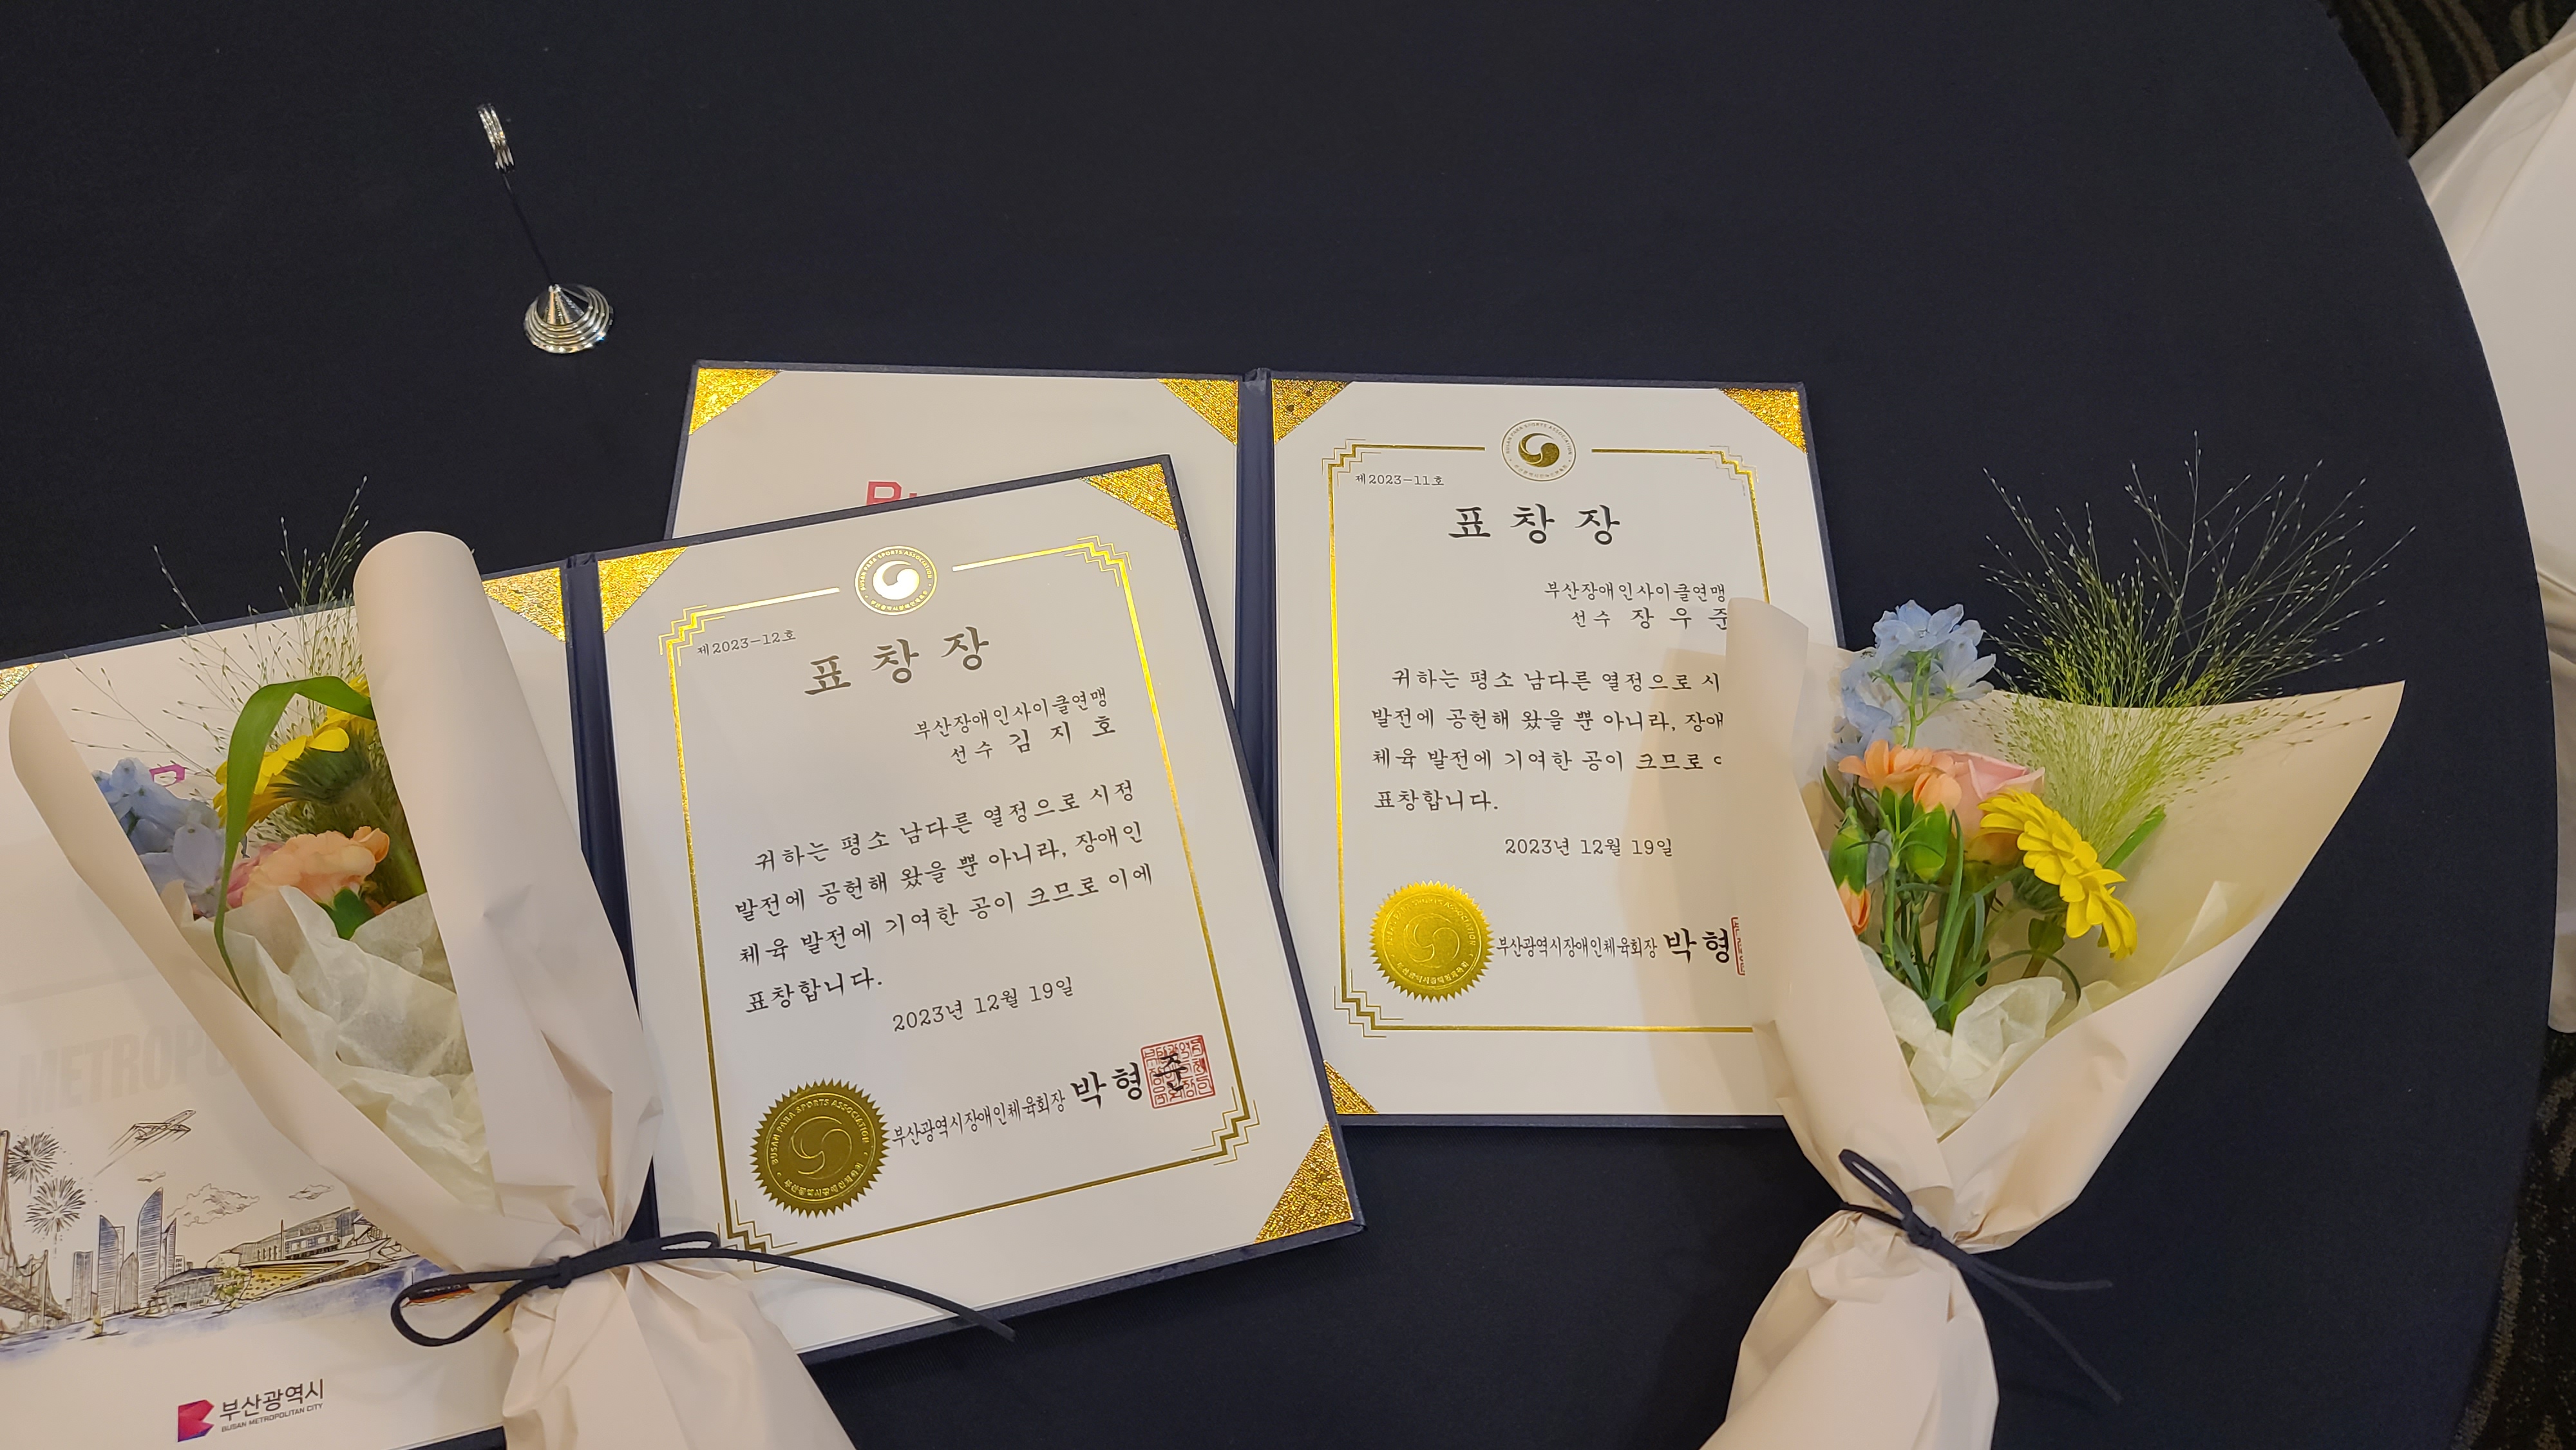 제2023-12호
표창장
부산장애인사이클연맹
선수 김지호
귀하는 평소 남다른 열정으로 시정
발전에 공헌해 왔을 뿐 아니라, 장애인
체육 발전에 기여한 공이 크므로 이에
표창합니다.
2023년 12월 19일
부산광역시장애인체육회장 박형준
BUSAN PARA SPORTS ASSOCIATION
제2023-11호
표창장
부산장애인사이클연맹
선수 장우준
귀하는 평소 남다른 열정으로 시
발전에 공헌해 왔을 뿐 아니라, 장애
체육 발전에 기여한 공이 크므로
표창합니다.
2023년 12월 19일
부산광역시장애인체육회장 박형
BUSAN PARA SPORTS ASSOCIATION
METROPO
부산광역시
BUSAN METROPOLITAN CITY